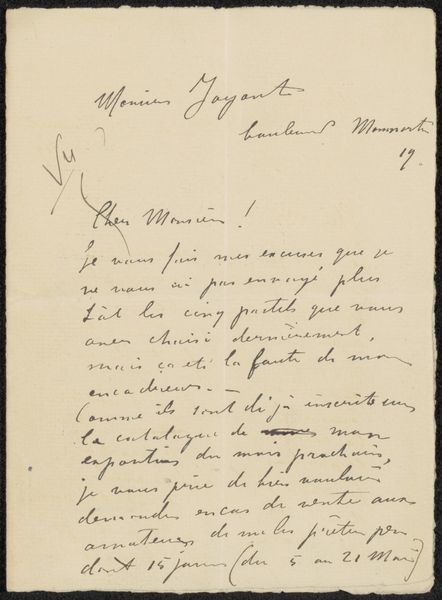 Monsieur Joyant
boulevard Montmartre
19.
Vu
Cher Monsieur!
Je vous fais mes excuses que je
ne vous ai pas envoyé plus
tôt les cinq pastels que vous
avez choisi dernièrement,
mais ça eté la faute de mon
encadreur. –
Comme ils sont déjà inscrits
le catalogue de mon
exposition du mois prochain,
je vous prie de bien vouloir
demander en cas de vente aux
amateurs de me les prêter pen
dant 15 jours (du 5 au 21 Mai)